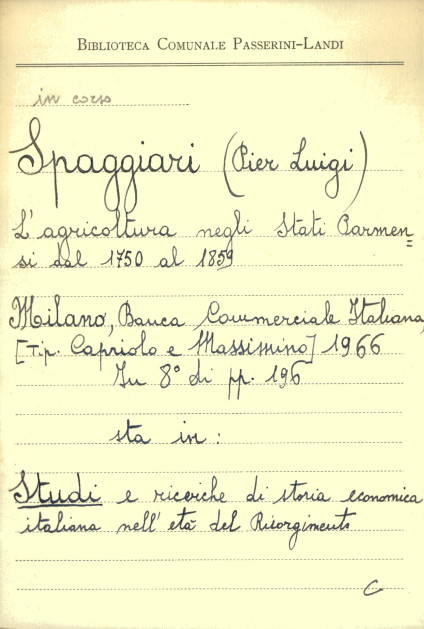 BIBLIOTECA COMUNALE PASSERINI-LANDI
in corso
Spaggiari (Pier Luigi)
L'agricoltura negli Stati Parmen=
si dal 1750 al 1859
Milano, Banca Commerciale Italiana,
[Tip. Capriolo e Massimino] 1966
In 8° di pp. 196
sta in:
Studi e ricerche di storia economica
italiana nell'età del Risorgimento
C